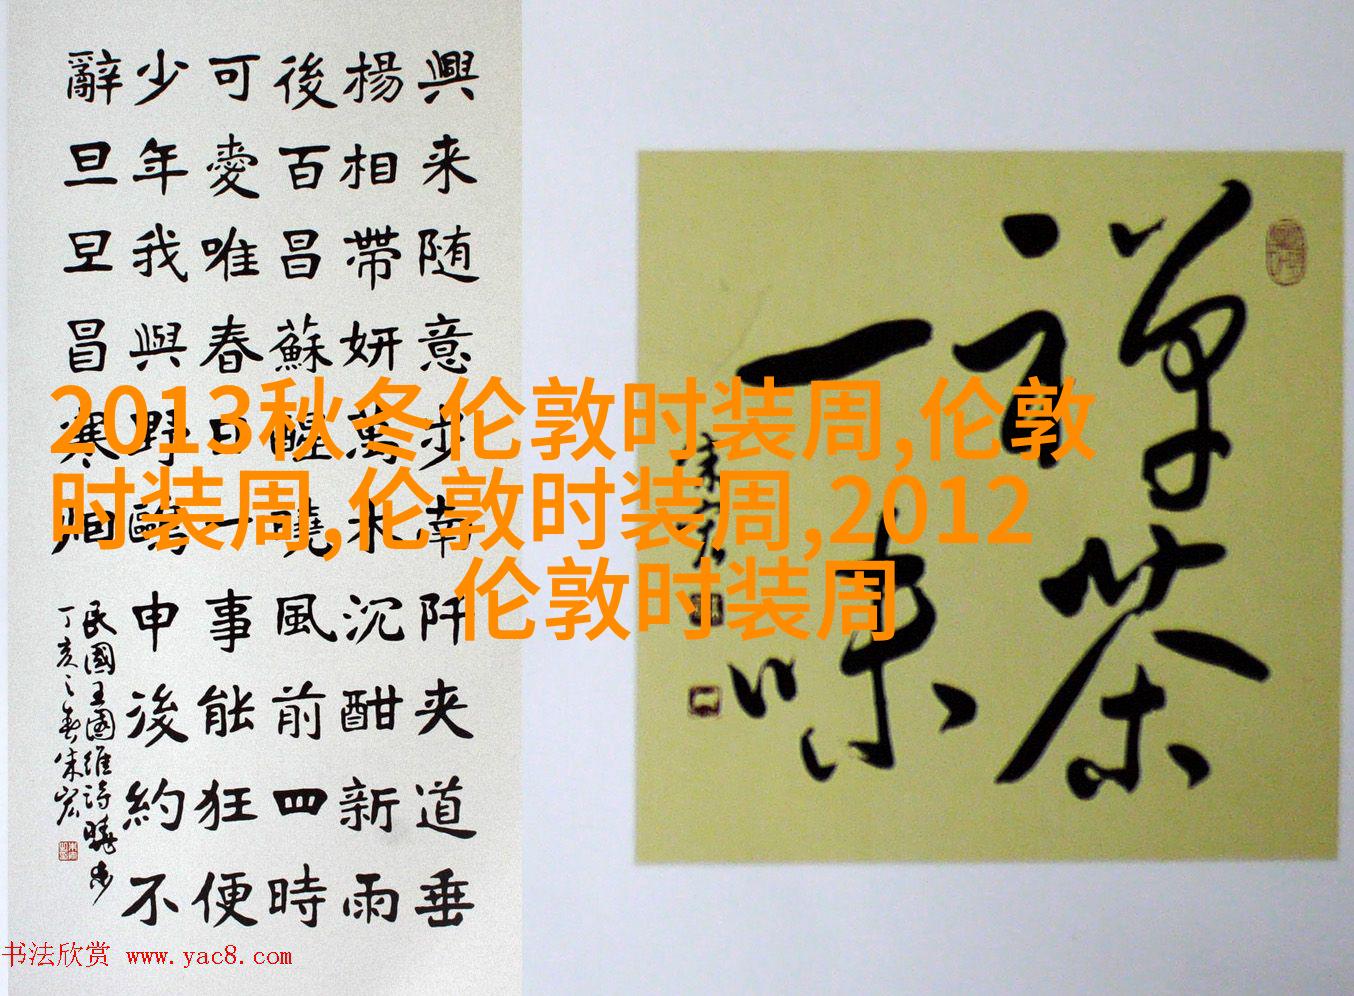 興来随意步南阡夹道垂
楊相帶妍萬木沉酣新雨
後百昌蘇醒曉風前四時
可愛唯春日一事能狂便
少年我與野鷗申後約不
辭旦旦冒寒烟
民國王國維詩曉步
丁亥之春朱宏
禅茶
一味
朱宏
2013秋冬伦敦时装周,伦敦
时装周,伦敦时装周,2012
伦敦时装周
书法欣赏 www.yac8.com